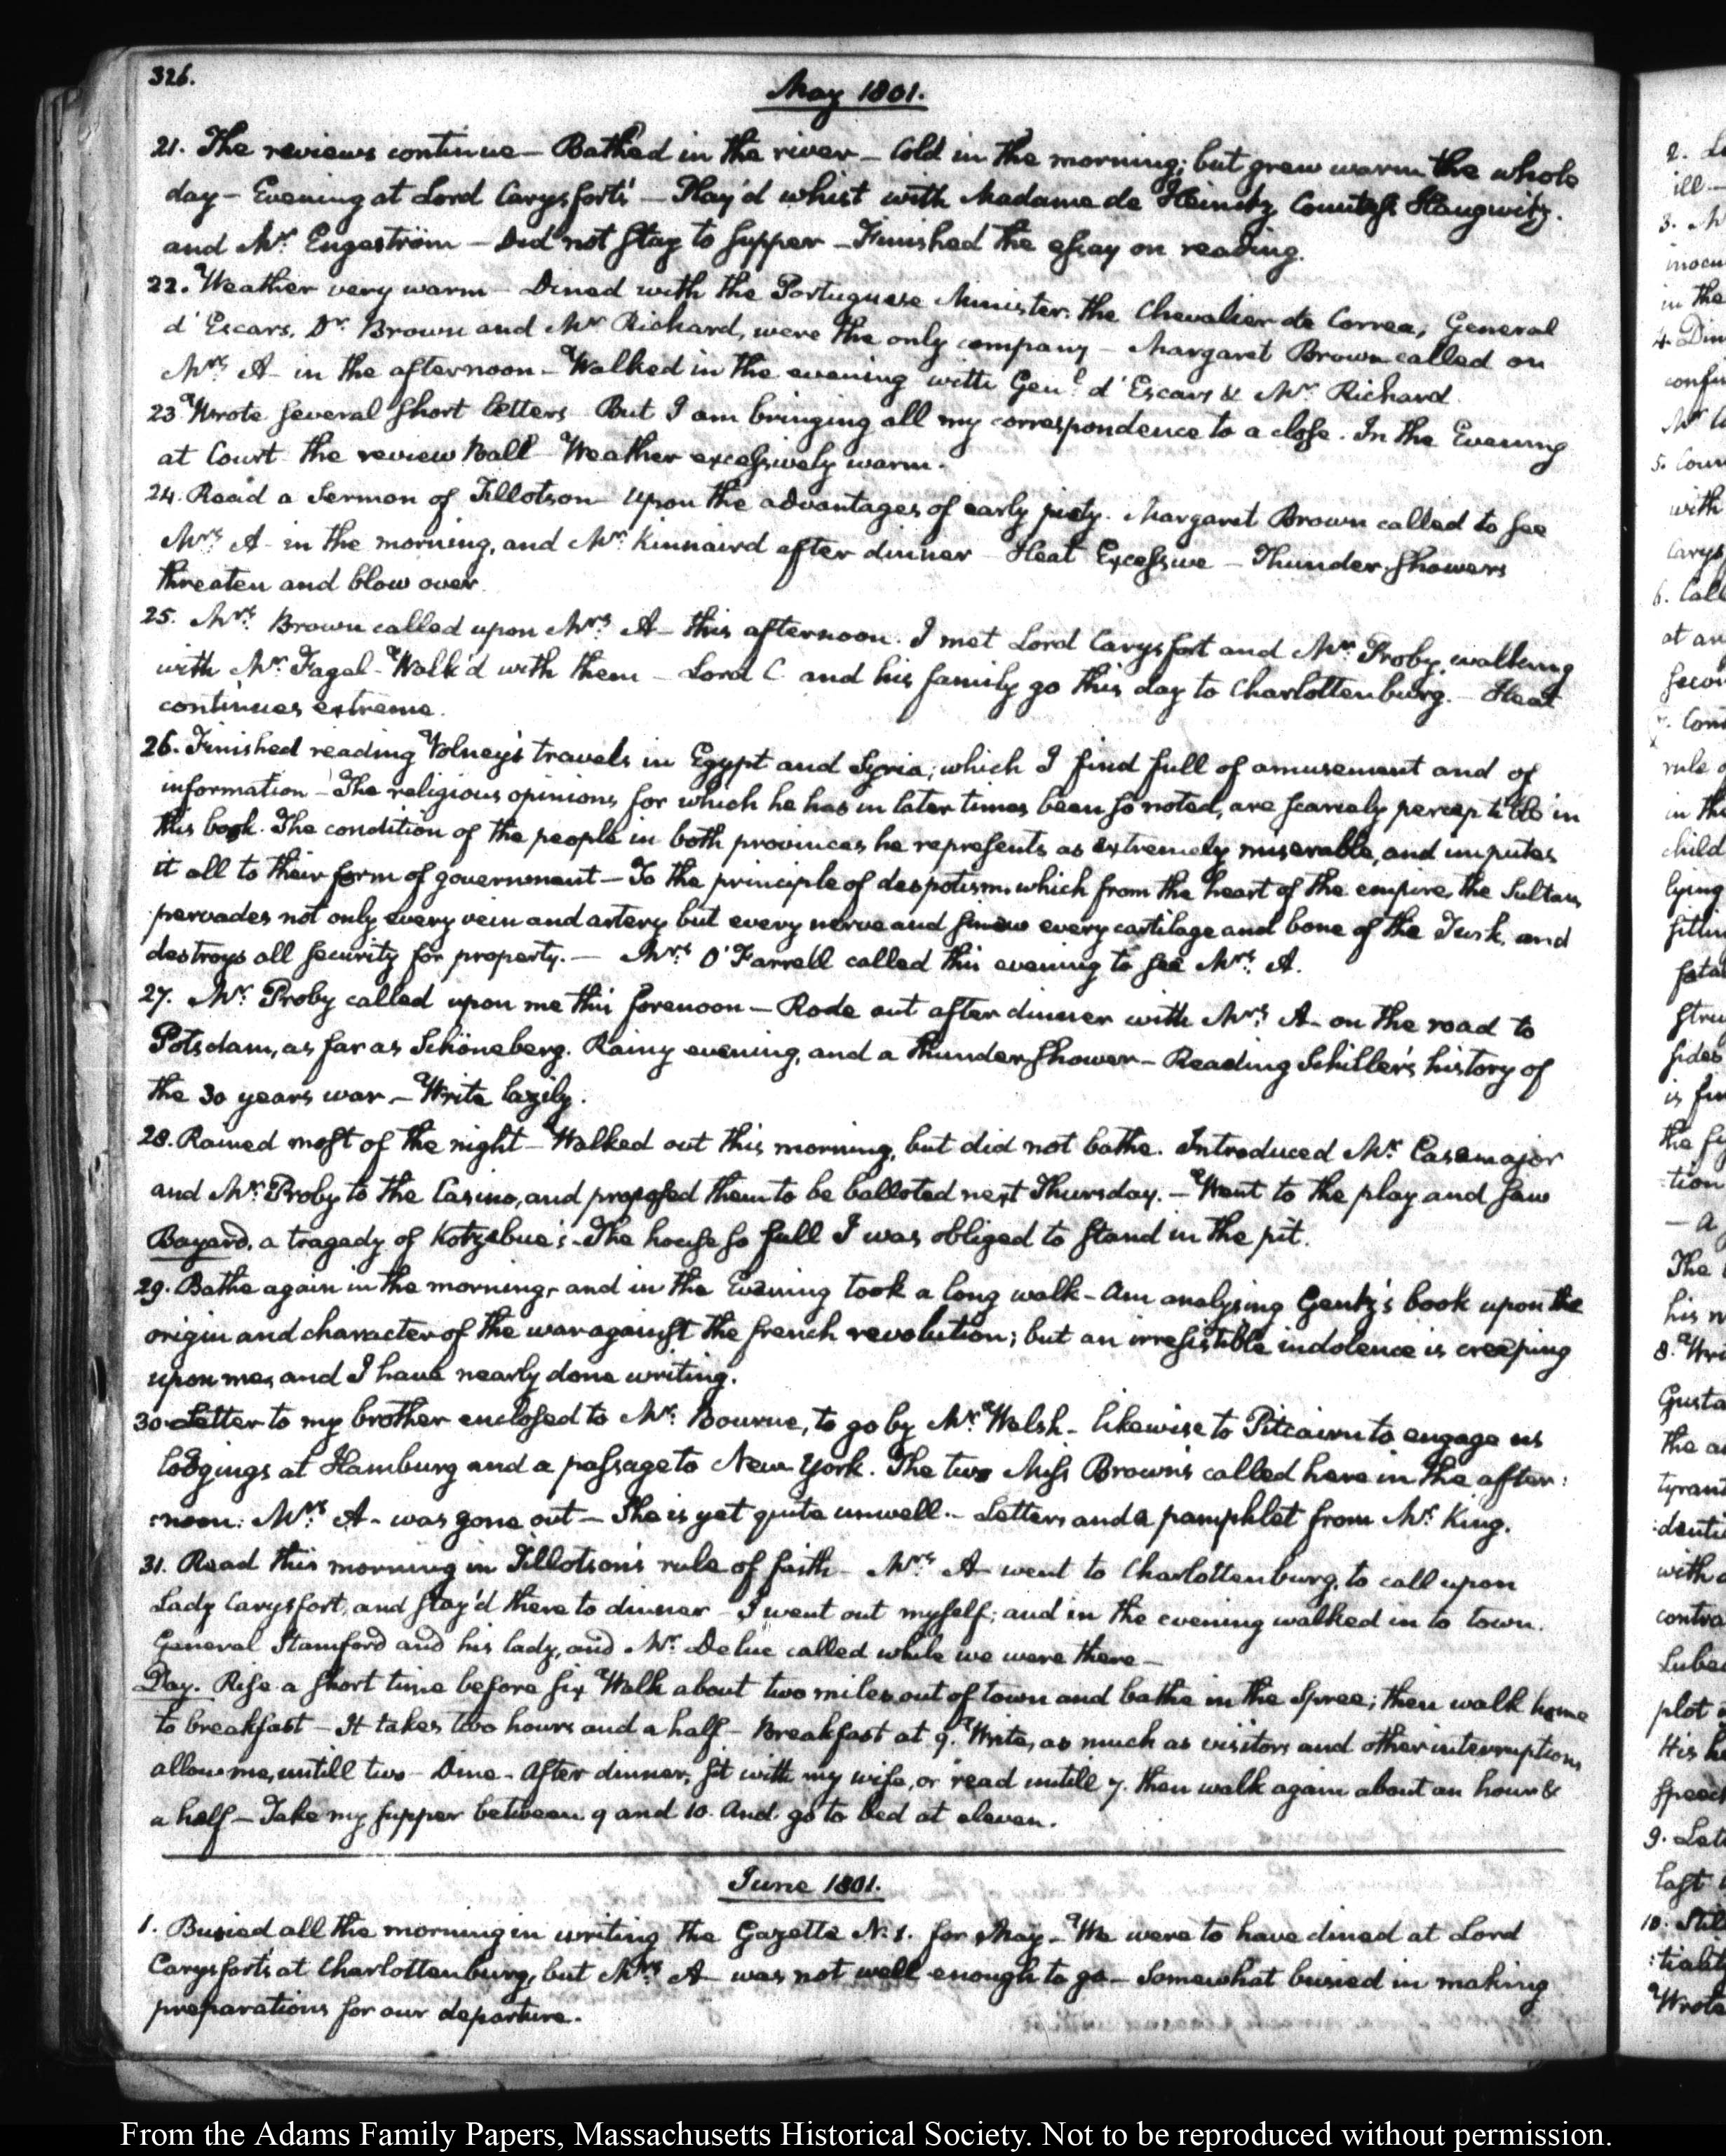 326.
May 1801.
21. The reviews continue — Bathed in the river — Cold in the morning; but grew warm the whole
day — Evening at Lord Carysfort's — Play'd whist with Madame de Heinitz, Countess Haugwitz.
and Mr. Engeström — Did not stay to supper — Finished the essay on reading.
22. Weather very warm — Dined with the Portuguese Minister, the Chevalier de Correa, General
d'Escars, Dr. Brown and Mr. Richard, were the only company — Margaret Brown called on
Mrs. A— in the afternoon — Walked in the evening with Genl. d'Escars & Mr. Richard.
23 Wrote several short letters But I am bringing all my correspondence to a close. In the Evening
at Court the review Ball — Weather excessively warm.
24. Read a Sermon of Tillotson upon the advantages of early piety. Margaret Brown called to see
Mrs. A— in the morning, and Mr. Kinnaird after dinner — Heat Excessive — Thunder showers
threaten and blow over.
25. Mrs. Brown called upon Mrs. A— this afternoon. I met Lord Carysfort and Mr. Proby, walking
with Mr. Fagal — Walk'd with them — Lord C. and his family go this day to Charlottenburg. — Heat
continues extreme.
26. Finished reading Volney's travels in Egypt and Syria; which I find full of amusement and of
information — The religious opinions for which he has in later times been so noted, are scarcely perceptible in
this book. The condition of the people in both provinces he represents as extremely miserable, and imputes
it all to their form of government — To the principle of despotism, which from the heart of the empire, the Sultan,
pervades not only every vein and artery but every nerve and sinew every cartilage and bone of the Turk, and
destroys all security for property. — Mrs. O'Farrell called this evening to see Mrs. A.
27. Mr. Proby called upon me this forenoon — Rode out after dinner with Mrs. A— on the road to
Potsdam, as far as Schöneberg. Rainy evening, and a thunder shower — Reading Schiller's history of
the 30 years war — Write lazily.
28. Rained most of the night — Walked out this morning, but did not bathe. Introduced Mr. Casamajor
and Mr. Proby to the Casino, and proposed them to be balloted next Thursday. — Went to the play and saw
Bayard, a tragedy of Kotzebue's — The house so full I was obliged to stand in the pit.
29. Bathe again in the morning, and in the Evening took a long walk — Am analysing Gentz's book upon the
origin and character of the war against the french revolution; but an irresistible indolence is creeping
upon me, and I have nearly done writing.
30 Letter to my brother enclosed to Mr. Bourne, to go by Mr. Welsh — likewise to Pitcairn to engage us
lodgings at Hamburg and a passage to New York. The two Miss Browns called here in the after:
:noon: Mrs. A— was gone out — She is yet quite unwell — Letters and a pamphlet from Mr. King.
31. Read this morning in Tillotson's rule of faith — Mrs. A— went to Charlottenburg, to call upon
Lady Carysfort, and stay'd there to dinner — I went out myself; and in the evening walked in to town.
General Stamford and his lady, and Mr. Deluc called while we were there —
Day. Rise a short time before six Walk about two miles out of town and bathe in the Spree; then walk home
to breakfast — It takes two hours and a half — Breakfast at 9. Write, as much as visitors and other interruptions
allow me, untill two — Dine — After dinner, sit with my wife, or read untill 7. then walk again about an hour &
a half — Take my supper between 9 and 10. And go to bed at eleven.
June 1801.
1. Busied all the morning in writing the Gazette N. 1. for May — We were to have dined at Lord
Carysfort's at Charlottenburg, but Mrs. A— was not well enough to go — Somewhat busied in making
preparations for our departure.
From the Adams Family Papers, Massachusetts Historical Society. Not to be reproduced without permission.